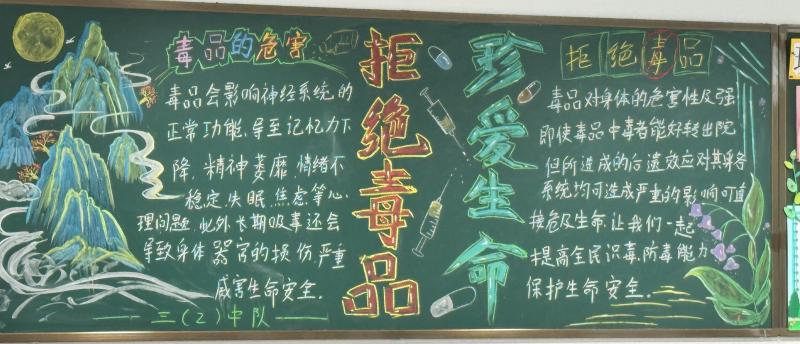 毒品的危害
毒品会影响神经系统的
正常功能，导至记忆力下
降，精神萎靡，情绪不
稳定，失眠，焦虑等心
理问题，此外长期吸毒还会
导致身体器官的损伤，严重
威害生命安全．
三（2）中队
拒绝毒品
珍爱生命
拒绝毒品
毒品对身体的危害性及强
即使毒品中毒者能好转出院
但所造成的后遗效应对其身各
系统均可造成严重的影响可直
接危及生命，让我们一起
提高全民识毒，防毒能力
保护生命安全．